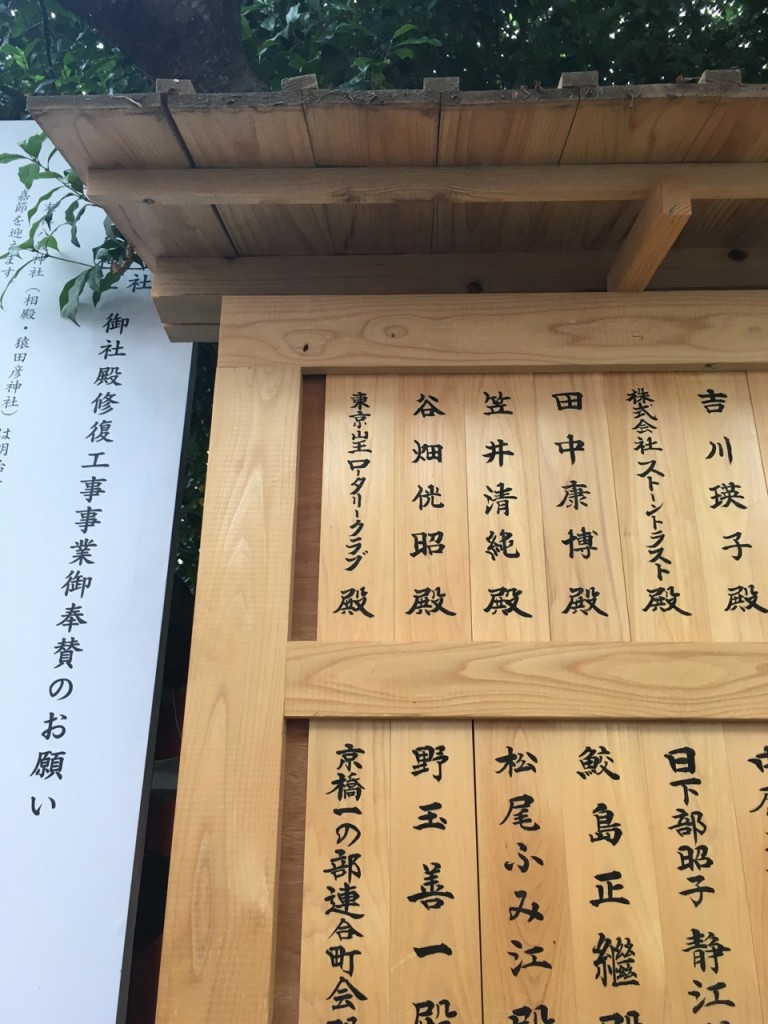 吉川瑛子殿
株式会社ストーントラスト殿
田中康博殿
笠井清純殿
谷畑侊昭殿
東京山王ロータリークラブ殿
日下部昭子 静江
鮫島正繼殿
松尾ふみ江殿
野玉善一殿
京橋一の部連合町会殿
社 御社殿修復工事事業御奉賛のお願い
神社(相殿・猿田彦神社)は明治
嘉節を迎えます